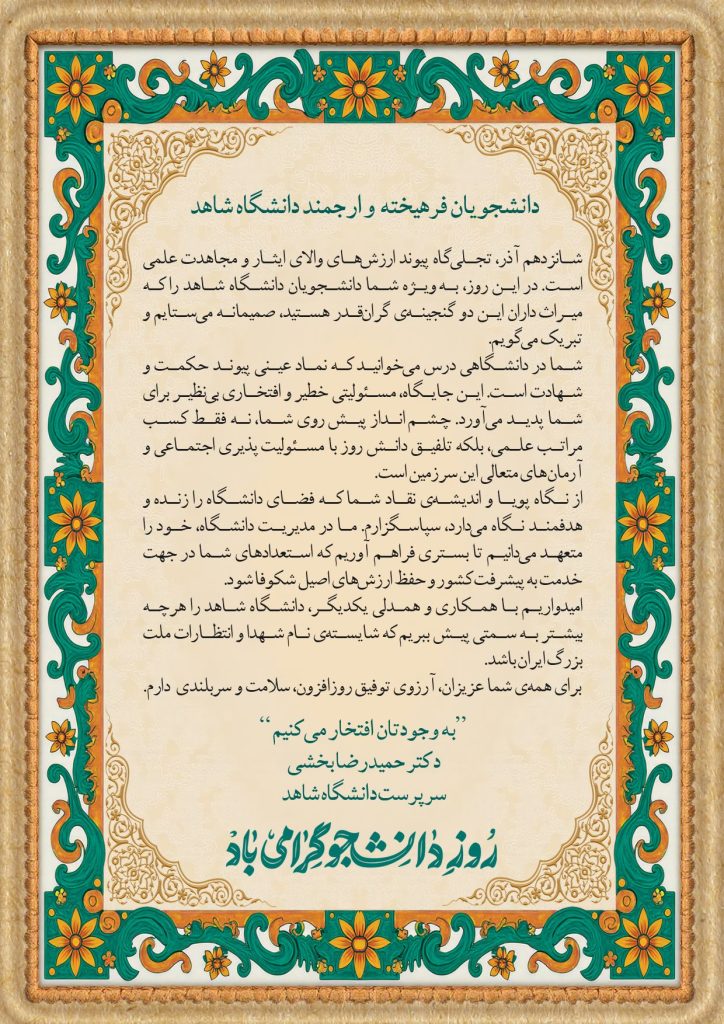 دانشجویان فرهیخته و ارجمند دانشگاه شاهد
شانزدهم آذر، تجلی‌گاه پیوند ارزش‌های والای ایثار و مجاهدت علمی
است. در این روز، به ویژه شما دانشجویان دانشگاه شاهد را که
میراث داران این دو گنجینه‌ی گران‌قدر هستید، صمیمانه می‌ستایم و
تبریک می‌گویم.
شما در دانشگاهی درس می‌خوانید که نماد عینی پیوند حکمت و
شهادت است. این جایگاه، مسئولیتی خطیر و افتخاری بی‌نظیر برای
شما پدید می‌آورد. چشم انداز پیش روی شما، نه فقط کسب
مراتب علمی، بلکه تلفیق دانش روز با مسئولیت پذیری اجتماعی و
آرمان‌های متعالی این سرزمین است.
از نگاه پویا و اندیشه‌ی نقاد شما که فضای دانشگاه را زنده و
هدفمند نگاه می‌دارد، سپاسگزارم. ما در مدیریت دانشگاه، خود را
متعهد می‌دانیم تا بستری فراهم آوریم که استعدادهای شما در جهت
خدمت به پیشرفت کشور و حفظ ارزش‌های اصیل شکوفا شود.
امیدواریم با همکاری و همدلی یکدیگر، دانشگاه شاهد را هرچه
بیشتر به سمتی پیش ببریم که شایسته‌ی نام شهدا و انتظارات ملت
بزرگ ایران باشد.
برای همه‌ی شما عزیزان، آرزوی توفیق روزافزون، سلامت و سربلندی دارم.
”به وجودتان افتخار می‌کنیم“
دکتر حمیدرضا بخشی
سرپرست دانشگاه شاهد
روُزِ دانشجو گرامی باد